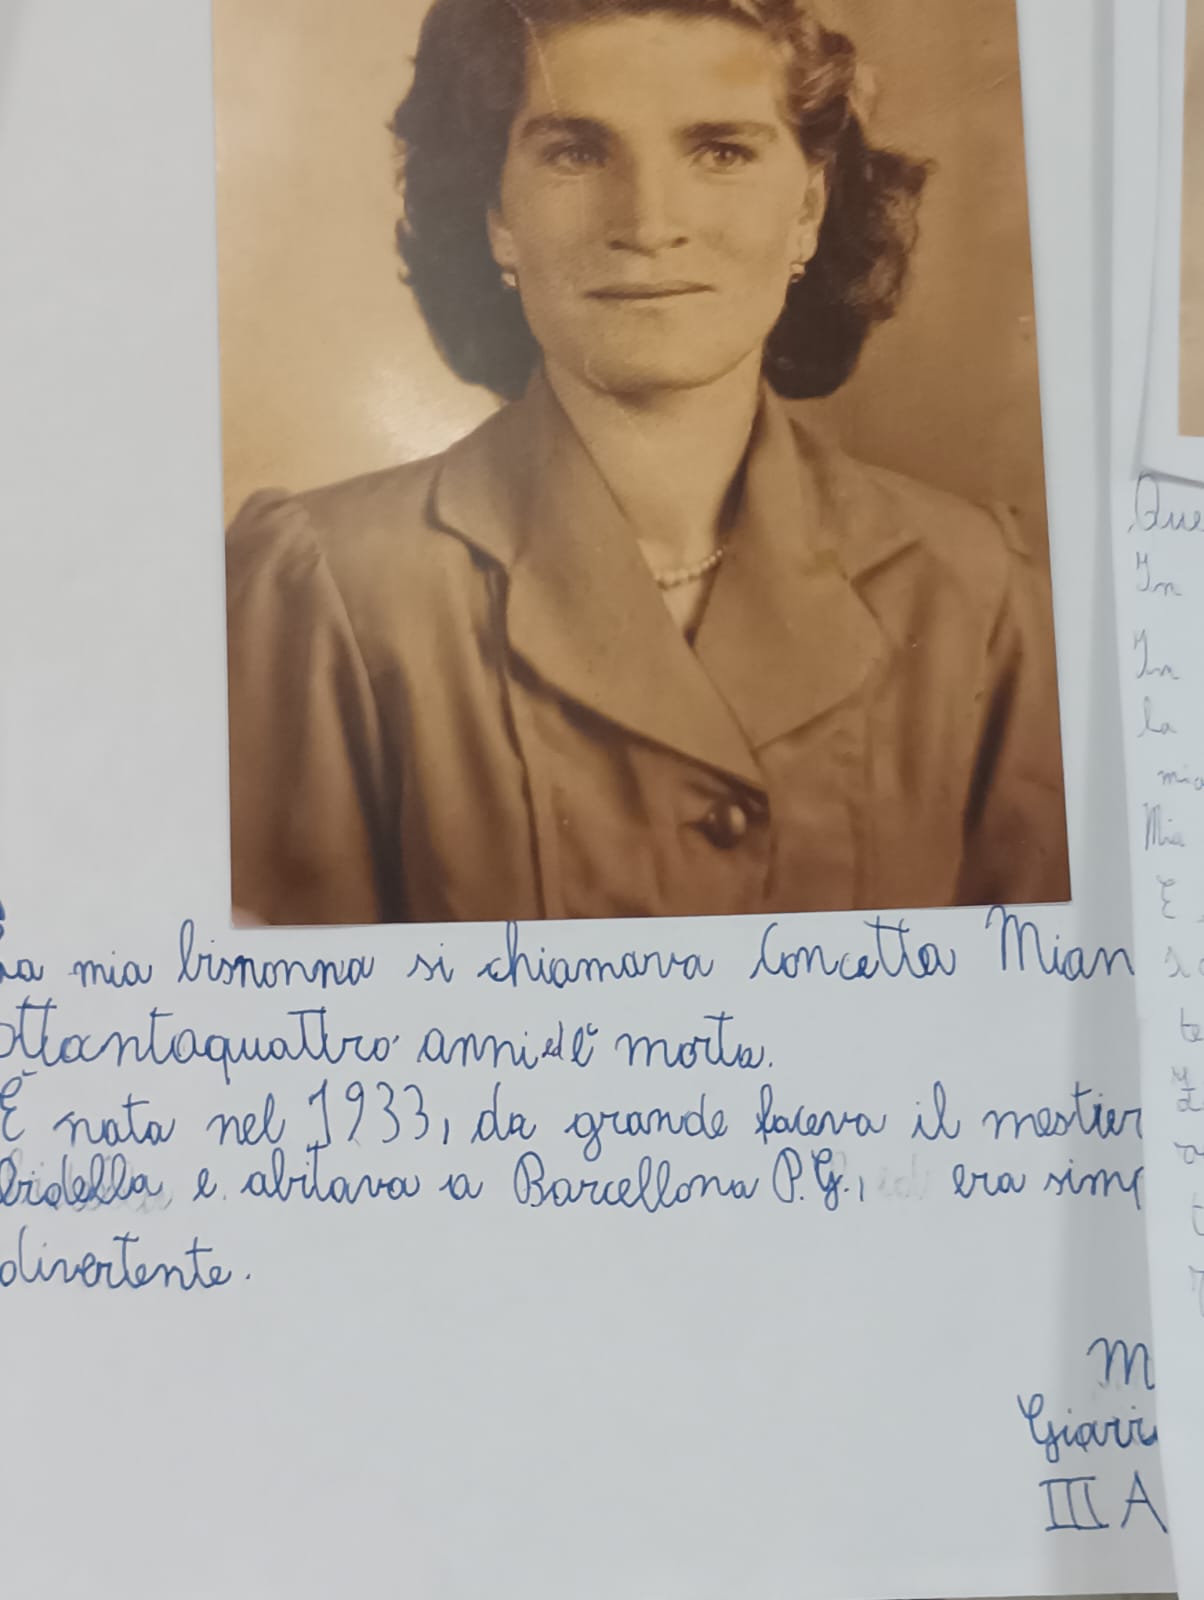 La mia bisnonna si chiamava Concetta Mian
ottantaquattro anni ed è morta.
È nata nel 1933, da grande faceva il mestier
bidella e abitava a Barcellona P.G., era simp
divertente.
M
Giarr
III A
Que
In
In
la
mia
Mia
E
te